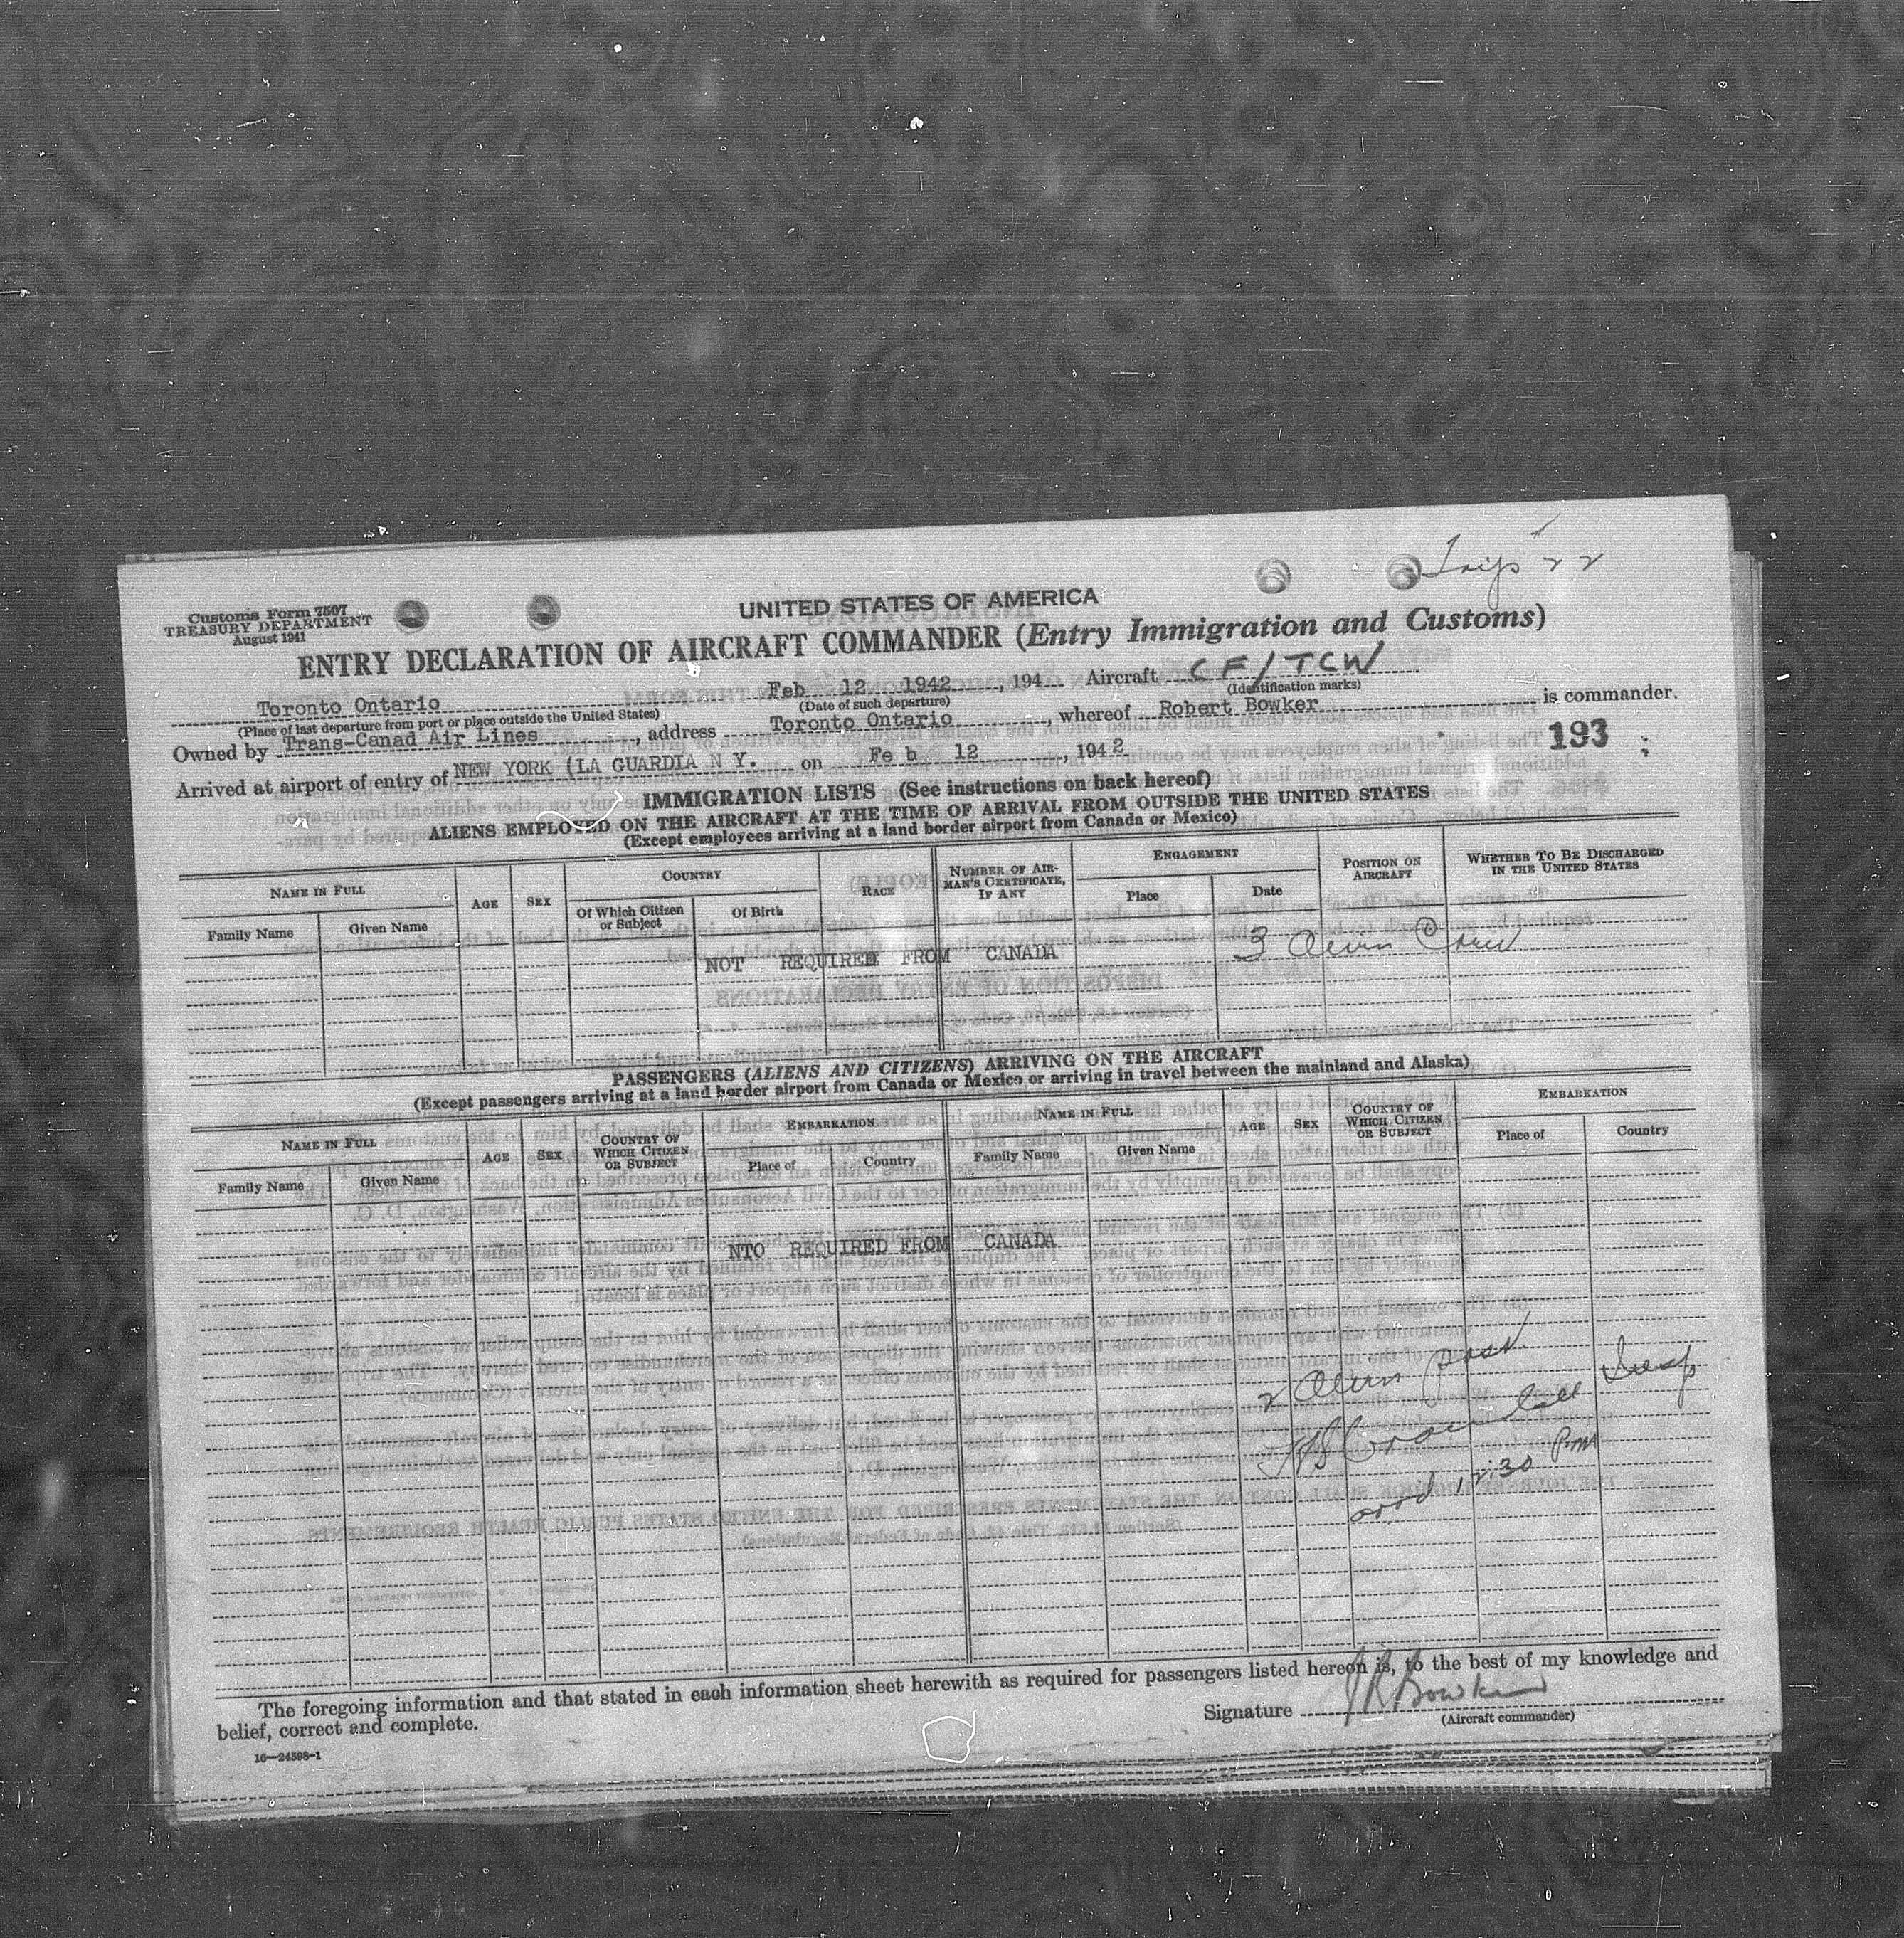 Trip 22
Customs Form 7507
TREASURY DEPARTMENT
August 1941
UNITED STATES OF AMERICA
ENTRY DECLARATION OF AIRCRAFT COMMANDER (Entry Immigration and Customs)
Toronto Ontario Feb 12 1942, 194 Aircraft CF/TCW
(Place of last departure from port or place outside the United States) (Date of such departure) (Identification marks)
Owned by Trans-Canad Air Lines, address Toronto Ontario, whereof Robert Bowker is commander.
Arrived at airport of entry of NEW YORK (LA GUARDIA N Y. on Fe b 12, 1942
193
IMMIGRATION LISTS (See instructions on back hereof)
ALIENS EMPLOYED ON THE AIRCRAFT AT THE TIME OF ARRIVAL FROM OUTSIDE THE UNITED STATES
(Except employees arriving at a land border airport from Canada or Mexico)
NAME IN FULL AGE SEX COUNTRY RACE NUMBER OF AIRMAN'S CERTIFICATE, IF ANY ENGAGEMENT POSITION ON AIRCRAFT WHETHER TO BE DISCHARGED IN THE UNITED STATES
Family Name Given Name Of Which Citizen or Subject Of Birth Place Date
NOT REQUIRED FROM CANADA 3 Alien Crew
PASSENGERS (ALIENS AND CITIZENS) ARRIVING ON THE AIRCRAFT
(Except passengers arriving at a land border airport from Canada or Mexico or arriving in travel between the mainland and Alaska)
NAME IN FULL AGE SEX COUNTRY OF WHICH CITIZEN OR SUBJECT EMBARKATION NAME IN FULL AGE SEX COUNTRY OF WHICH CITIZEN OR SUBJECT EMBARKATION
Family Name Given Name Place of Country Family Name Given Name Place of Country
NTO REQUIRED FROM CANADA
2 Alien pass
Insp
arrd 12:30 Pm
The foregoing information and that stated in each information sheet herewith as required for passengers listed hereon is, to the best of my knowledge and
belief, correct and complete.
Signature J R Bowker
(Aircraft commander)
16—24598-1